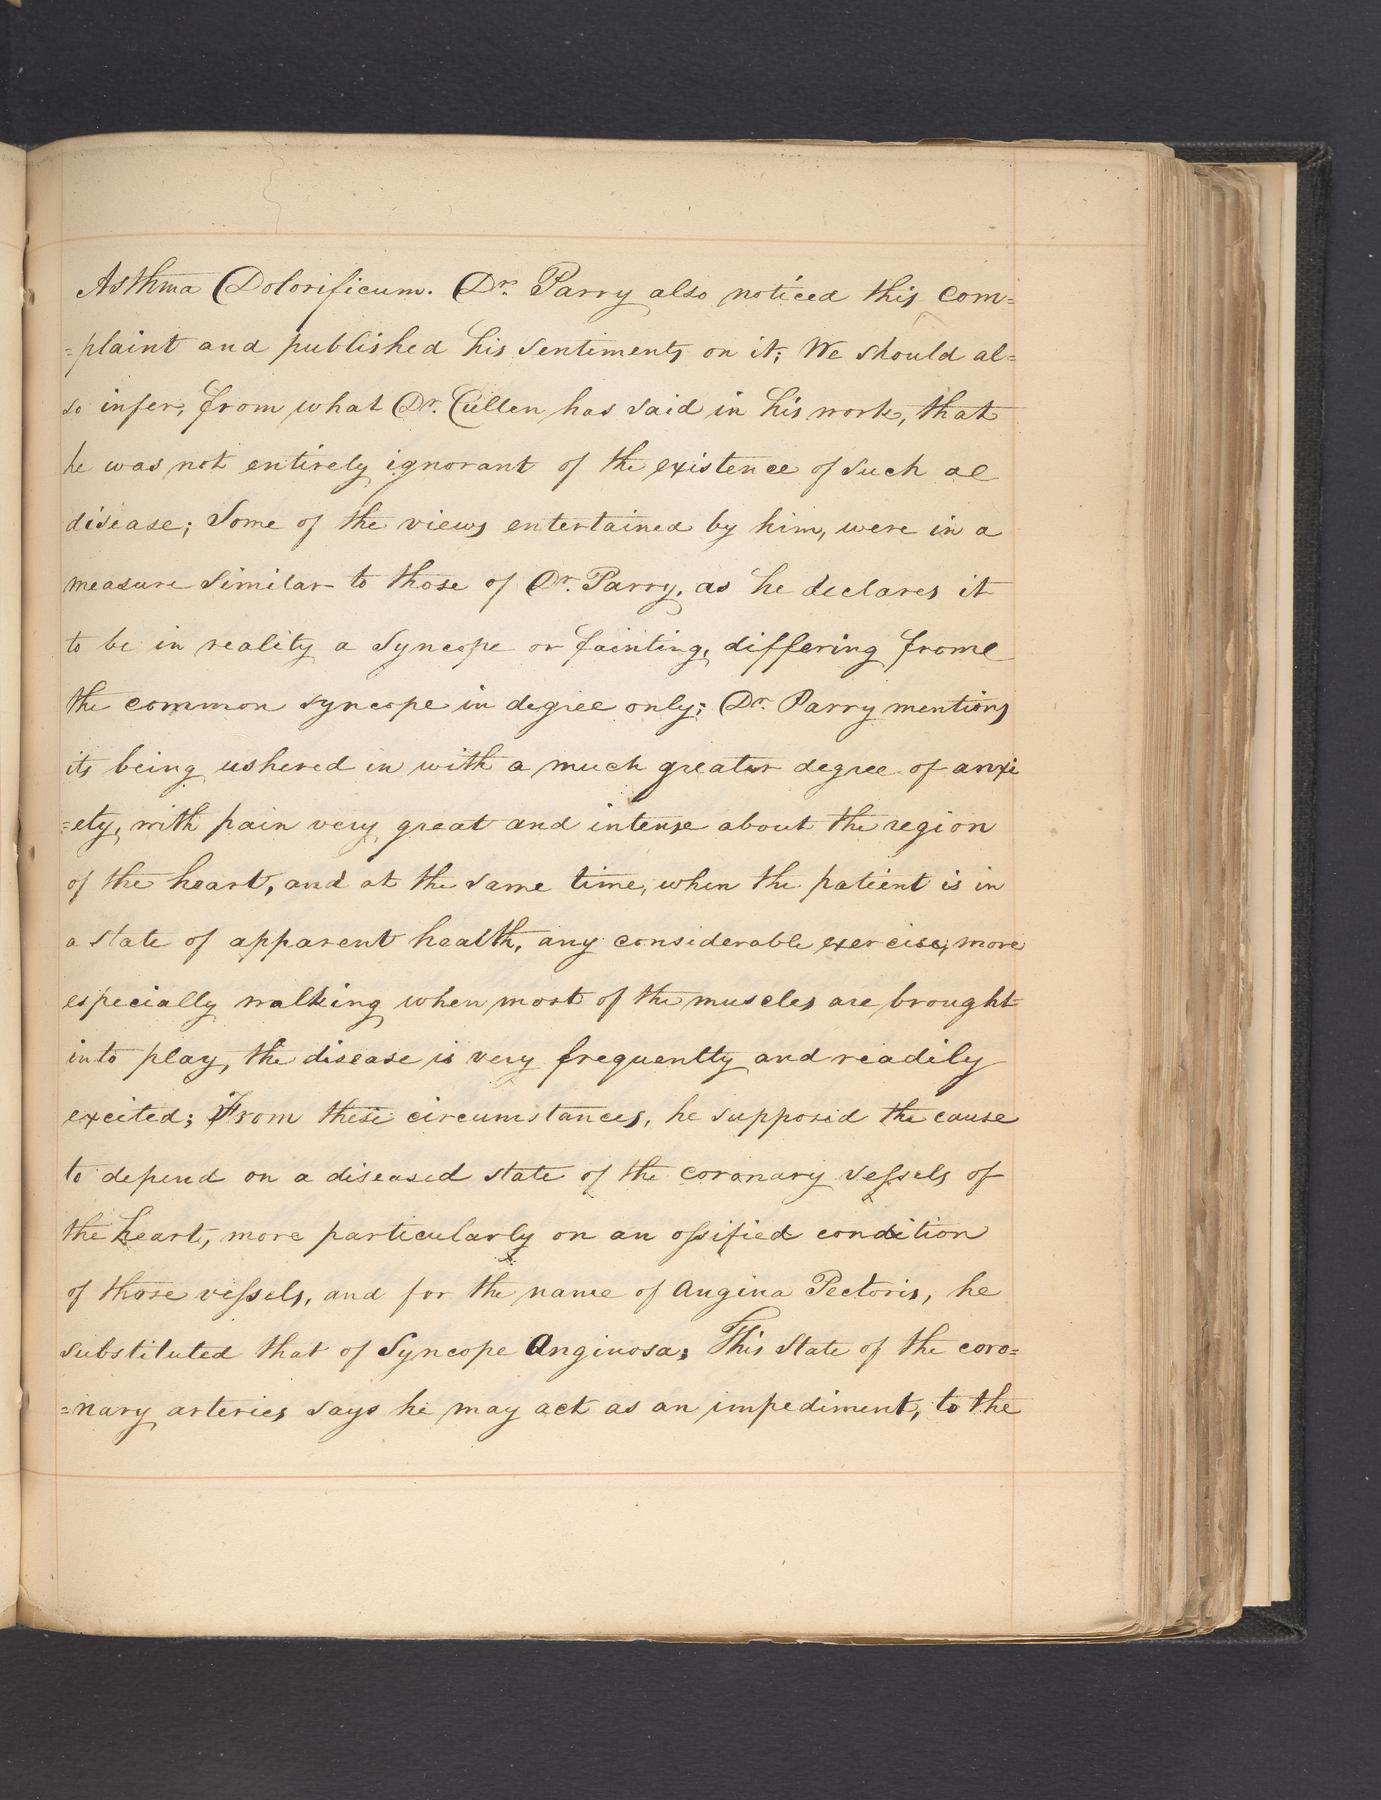 Asthma Dolorificum. Dr. Parry also noticed this com=
=plaint and published his sentiments on it; We should al=
so infer, from what Dr. Cullen has said in his work, that
he was not entirely ignorant of the existence of such a
disease; Some of the views entertained by him, were in a
measure similar to those of Dr. Parry, as he declares it
to be in reality a Syncope or fainting, differing from
the common syncope in degree only; Dr. Parry mentions
its being ushered in with a much greater degree of anxi
=ety, with pain very great and intense about the region
of the heart, and at the same time, when the patient is in
a state of apparent health, any considerable exercise, more
especially walking when most of the muscles are brought
into play, the disease is very frequently and readily
excited; From these circumstances, he supposed the cause
to depend on a diseased state of the coronary vessels of
the heart, more particularly on an ossified condition
of those vessels, and for the name of Angina Pectoris, he
substituted that of Syncope Anginosa; This state of the coro=
=nary arteries says he may act as an impediment, to the